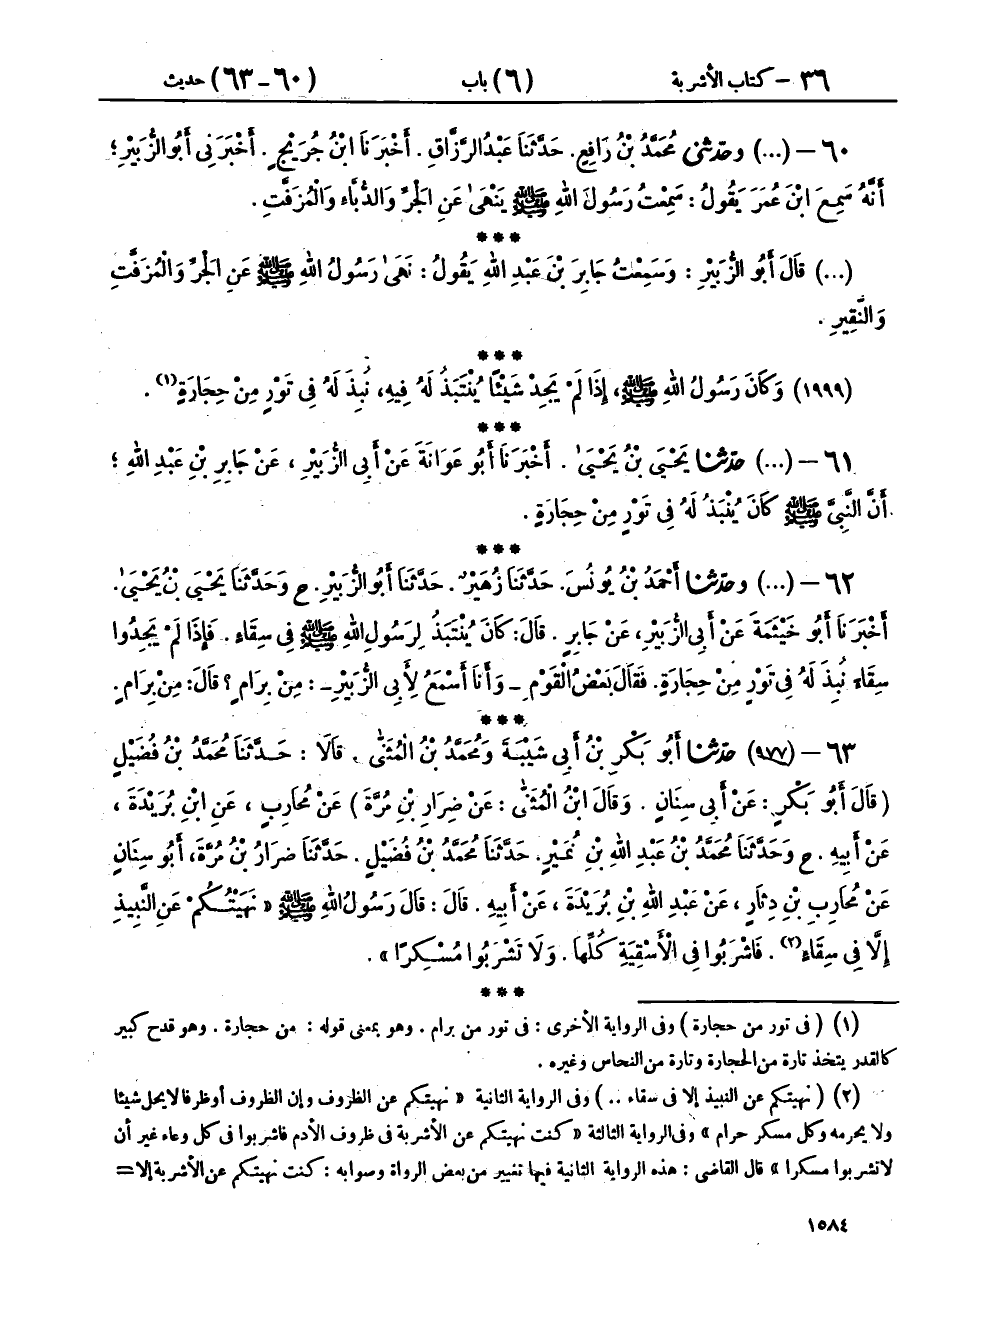 ٣٦ – كتاب الأشربة (٦) باب (٦٠ – ٦٣) حديث
٦٠ – (...) وحدثني مُحَمَّدُ بْنُ رَافِعٍ. حَدَّثَنَا عَبْدُ الرَّزَّاقِ. أَخْبَرَنَا ابْنُ جُرَيْجٍ. أَخْبَرَنِي أَبُو الزُّبَيْرِ؛
أَنَّهُ سَمِعَ ابْنَ عُمَرَ يَقُولُ: سَمِعْتُ رَسُولَ اللهِ ﷺ يَنْهَىٰ عَنِ الْجَرِّ وَالدُّبَّاءِ وَالْمُزَفَّتِ.
***
(...) قَالَ أَبُو الزُّبَيْرِ: وَسَمِعْتُ جَابِرَ بْنَ عَبْدِ اللهِ يَقُولُ: نَهَىٰ رَسُولُ اللهِ ﷺ عَنِ الْجَرِّ وَالْمُزَفَّتِ
وَالنَّقِيرِ.
***
(١٩٩٩) وَكَانَ رَسُولُ اللهِ ﷺ، إِذَا لَمْ يَجِدْ شَيْئًا يُنْتَبَذُ لَهُ فِيهِ، نُبِذَ لَهُ فِي تَوْرٍ مِنْ حِجَارَةٍ(١).
***
٦١ – (...) حدثنا يَحْيَىٰ بْنُ يَحْيَىٰ. أَخْبَرَنَا أَبُو عَوَانَةَ عَنْ أَبِي الزُّبَيْرِ، عَنْ جَابِرِ بْنِ عَبْدِ اللهِ؛
أَنَّ النَّبِيَّ ﷺ كَانَ يُنْبَذُ لَهُ فِي تَوْرٍ مِنْ حِجَارَةٍ.
***
٦٢ – (...) وحدثنا أَحْمَدُ بْنُ يُونُسَ. حَدَّثَنَا زُهَيْرٌ. حَدَّثَنَا أَبُو الزُّبَيْرِ. ح وَحَدَّثَنَا يَحْيَىٰ بْنُ يَحْيَىٰ.
أَخْبَرَنَا أَبُو خَيْثَمَةَ عَنْ أَبِي الزُّبَيْرِ، عَنْ جَابِرٍ. قَالَ: كَانَ يُنْتَبَذُ لِرَسُولِ اللهِ ﷺ فِي سِقَاءٍ. فَإِذَا لَمْ يَجِدُوا
سِقَاءً نُبِذَ لَهُ فِي تَوْرٍ مِنْ حِجَارَةٍ. فَقَالَ بَعْضُ الْقَوْمِ – وَأَنَا أَسْمَعُ لِأَبِي الزُّبَيْرِ –: مِنْ بِرَامٍ؟ قَالَ: مِنْ بِرَامٍ.
***
٦٣ – (٩٧٧) حدثنا أَبُو بَكْرِ بْنُ أَبِي شَيْبَةَ وَمُحَمَّدُ بْنُ الْمُثَنَّىٰ. قَالَا: حَدَّثَنَا مُحَمَّدُ بْنُ فُضَيْلٍ
(قَالَ أَبُو بَكْرٍ: عَنْ أَبِي سِنَانٍ. وَقَالَ ابْنُ الْمُثَنَّىٰ: عَنْ ضِرَارِ بْنِ مُرَّةَ) عَنْ مُحَارِبٍ، عَنِ ابْنِ بُرَيْدَةَ،
عَنْ أَبِيهِ. ح وَحَدَّثَنَا مُحَمَّدُ بْنُ عَبْدِ اللهِ بْنِ نُمَيْرٍ. حَدَّثَنَا مُحَمَّدُ بْنُ فُضَيْلٍ. حَدَّثَنَا ضِرَارُ بْنُ مُرَّةَ، أَبُو سِنَانٍ
عَنْ مُحَارِبِ بْنِ دِثَارٍ، عَنْ عَبْدِ اللهِ بْنِ بُرَيْدَةَ، عَنْ أَبِيهِ. قَالَ: قَالَ رَسُولُ اللهِ ﷺ «نَهَيْتُكُمْ عَنِ النَّبِيذِ
إِلَّا فِي سِقَاءٍ(٢). فَاشْرَبُوا فِي الْأَسْقِيَةِ كُلِّهَا. وَلَا تَشْرَبُوا مُسْكِرًا».
***
(١) (في تور من حجارة) وفي الرواية الأخرى: في تور من برام. وهو بمعنى قوله: من حجارة. وهو قدح كبير
كالقدر يتخذ تارة من الحجارة وتارة من النحاس وغيره.
(٢) (نهيتكم عن النبيذ إلا في سقاء ..) وفي الرواية الثانية «نهيتكم عن الظروف وإن الظروف أو ظرفا لا يحل شيئا
ولا يحرمه وكل مسكر حرام» وفي الرواية الثالثة «كنت نهيتكم عن الأشربة في ظروف الأدم فاشربوا في كل وعاء غير أن
لا تشربوا مسكرا» قال القاضي: هذه الرواية الثانية فيها تغيير من بعض الرواة وصوابه: كنت نهيتكم عن الأشربة إلا =
١٥٨٤